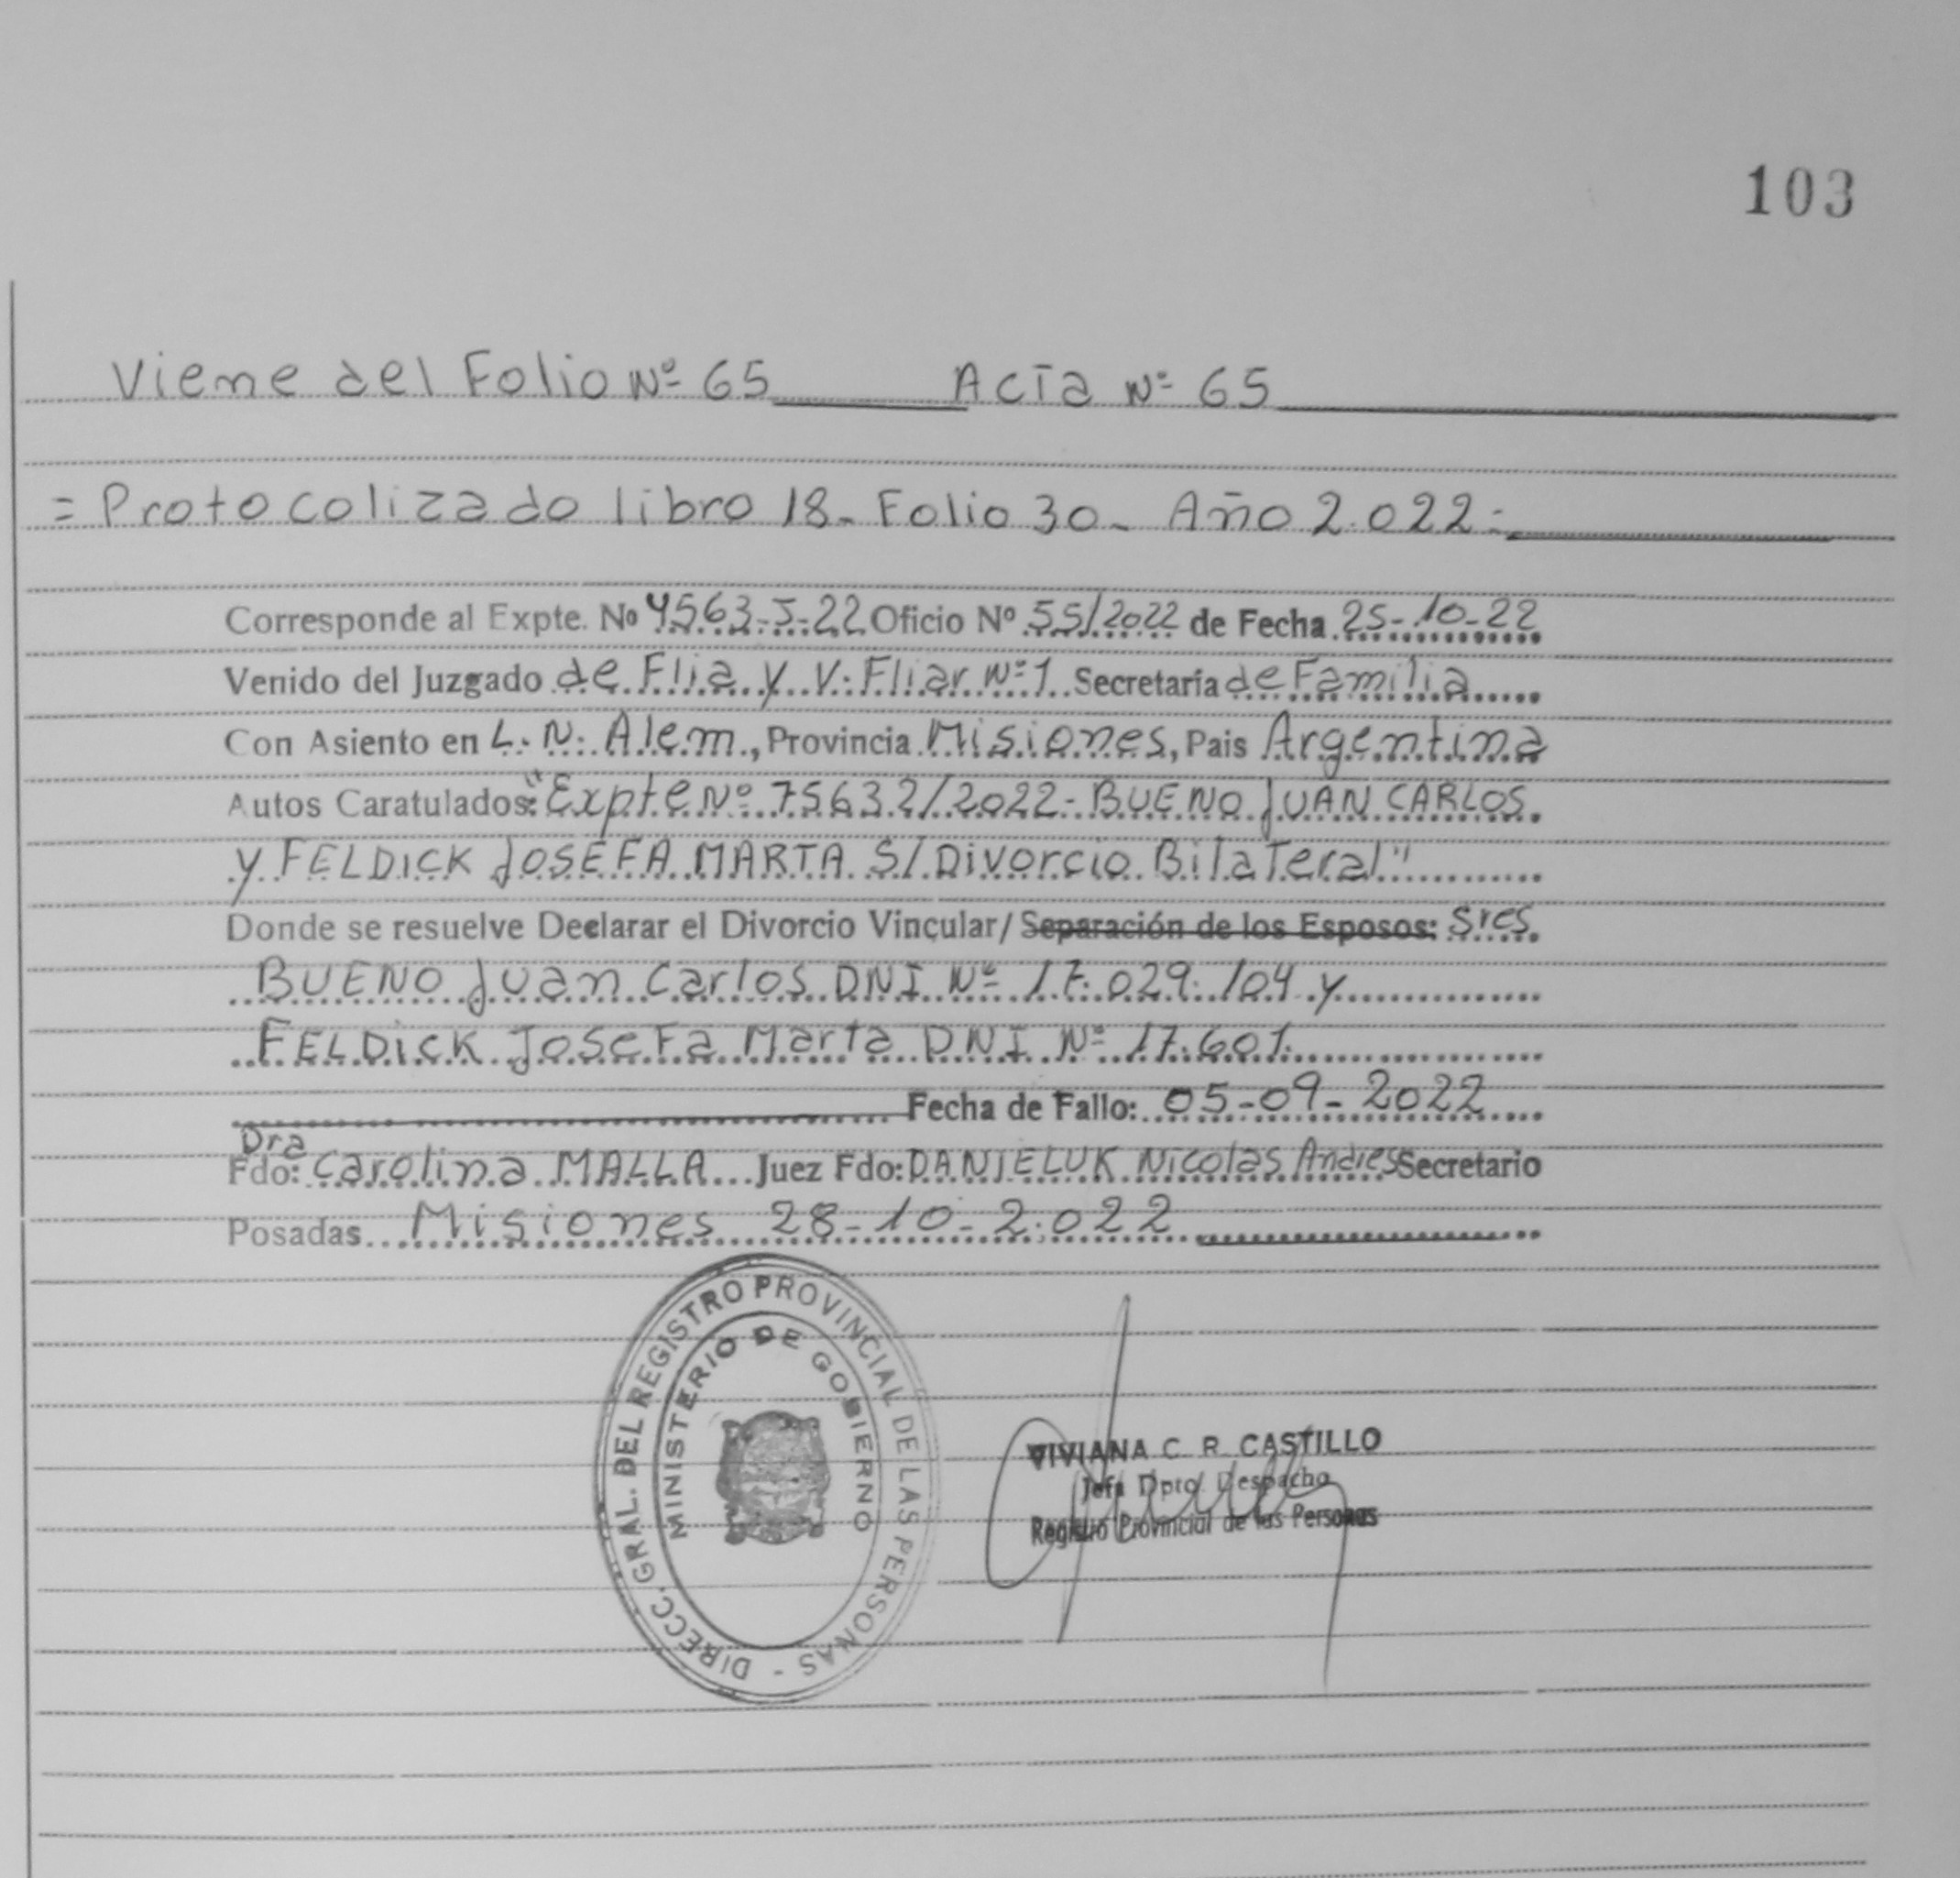 103
Viene del Folio Nº 65 Acta Nº 65
= Protocolizado libro 18- Folio 30- Año 2.022-
Corresponde al Expte. Nº 4563-J-22 Oficio Nº 55/2022 de Fecha 25-10-22
Venido del Juzgado de Flia y V. Fliar Nº 1 Secretaría de Familia
Con Asiento en L. N. Alem, Provincia Misiones, Pais Argentina
Autos Caratulados: "Expte Nº 75632/2022- BUENO JUAN CARLOS
y FELDICK JOSEFA MARTA S/ Divorcio Bilateral"
Donde se resuelve Declarar el Divorcio Vincular/ Separación de los Esposos: Sres
BUENO Juan Carlos DNI Nº 17.029.104 y
FELDICK Josefa Marta DNI Nº 17.601.
Fecha de Fallo: 05-09-2022
Dra
Fdo: Carolina MALLA Juez Fdo: DANIELUK Nicolas Andres Secretario
Posadas Misiones 28-10-2.022
DIRECC. GRAL. DEL REGISTRO PROVINCIAL DE LAS PERSONAS -
MINISTERIO DE GOBIERNO
VIVIANA C. R. CASTILLO
Jefa Dpto. Despacho
Registro Provincial de las Personas